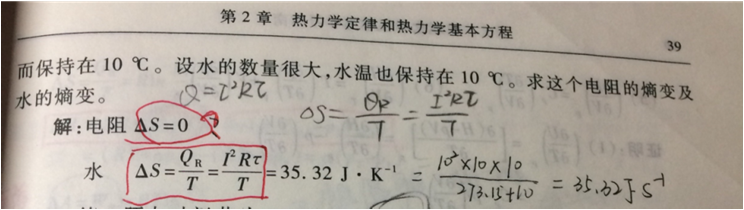 第 2 章 热力学定律和热力学基本方程
39
而保持在 10 ℃。设水的数量很大,水温也保持在 10 ℃。求这个电阻的熵变及
水的熵变。 Q=I²Rτ
解:电阻 ΔS=0 ΔS=Q_R/T=I²Rτ/T
水 ΔS=Q_R/T=I²Rτ/T=35.32 J·K⁻¹ = 10²×10×10/273.15+10 = 35.32J S⁻¹